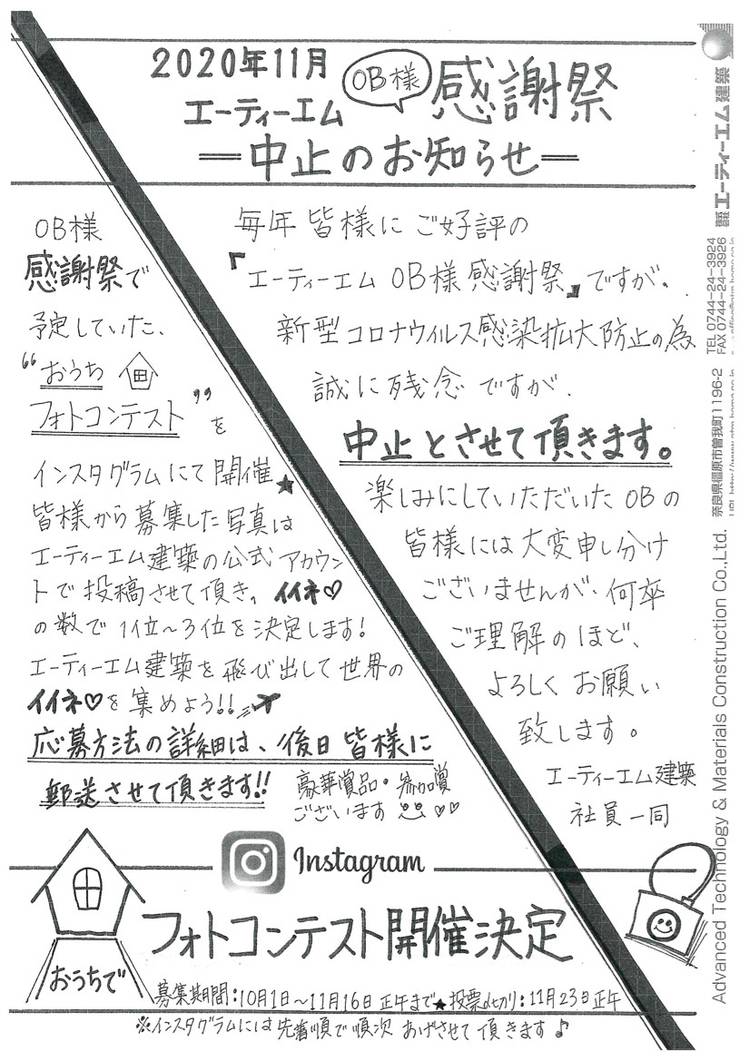 2020年11月
エーティーエム
OB様
感謝祭
中止のお知らせ
毎年 皆様に ご好評の
『エーティーエム OB様 感謝祭』ですが、
新型コロナウイルス感染拡大防止の為
誠に残念ですが、
中止とさせて頂きます。
楽しみにしていただいた OBの
皆様には大変申し分け
ございませんが、何卒
ご理解のほど、
よろしくお願い
致します。
エーティーエム建築
社員一同
OB様
感謝祭で
予定していた、
“おうち
フォトコンテスト”を
インスタグラムにて開催★
皆様から募集した写真は
エーティーエム建築の公式アカウン
トで投稿させて頂き、イイネ♡
の数で 1位~3位を決定します!
エーティーエム建築を飛び出して世界の
イイネ♡を集めよう!!
応募方法の詳細は、後日皆様に
郵送させて頂きます!!
豪華賞品・参加賞
ございます ♡♡
Instagram
おうちで
フォトコンテスト開催決定
募集期間:10月1日~11月16日 正午まで★投票〆切り:11月23日正午
※インスタグラムには先着順で順次 あげさせて頂きます♪
エーティーエム建築
TEL 0744-24-3924
FAX 0744-24-3926
奈良県橿原市曽我町1196-2
Advanced Technology & Materials Construction Co.,Ltd.